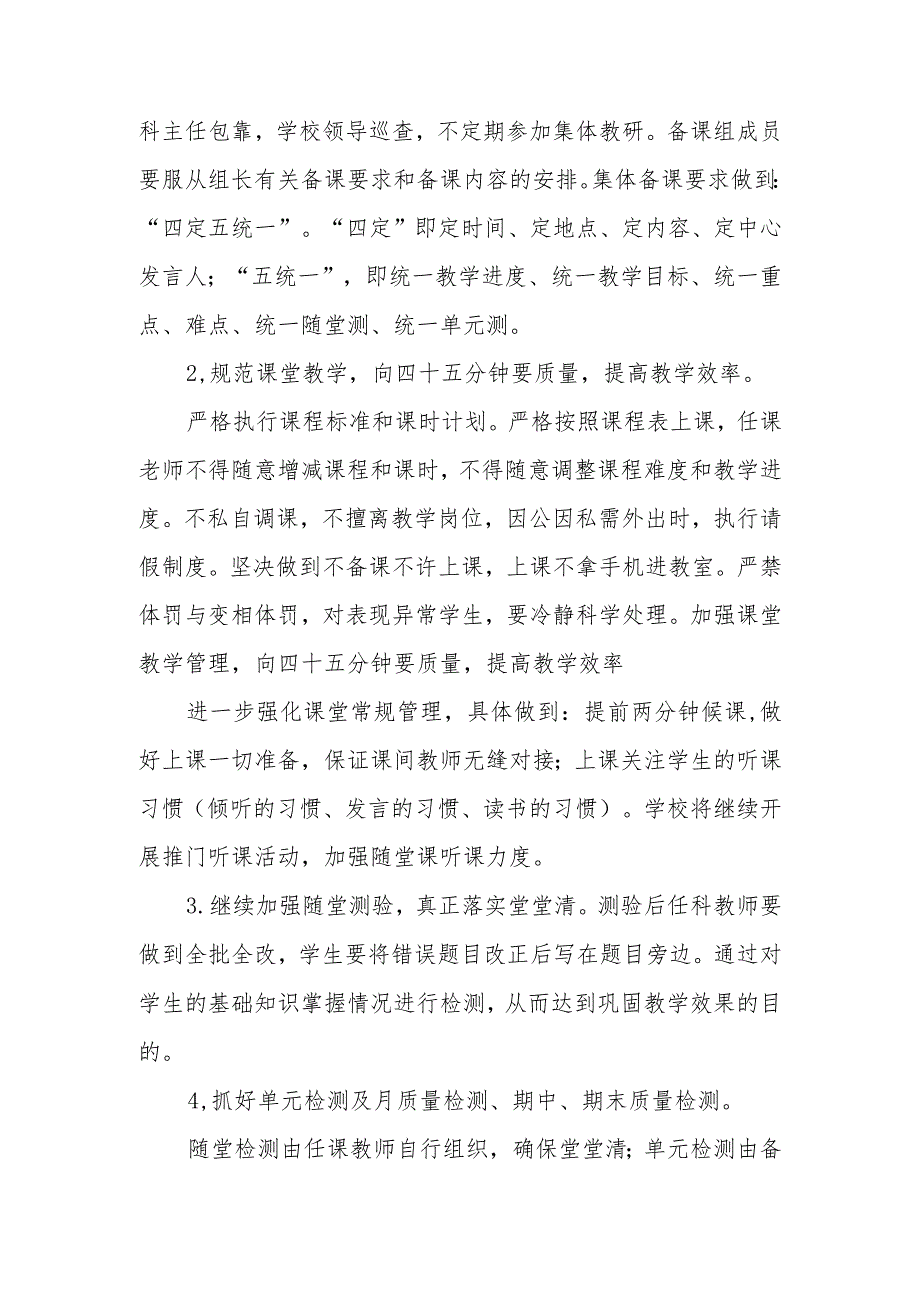 科主任包靠，学校领导巡查，不定期参加集体教研。备课组成员
要服从组长有关备课要求和备课内容的安排。集体备课要求做到：
“四定五统一”。“四定”即定时间、定地点、定内容、定中心
发言人；“五统一”，即统一教学进度、统一教学目标、统一重
点、难点、统一随堂测、统一单元测。
2,规范课堂教学，向四十五分钟要质量，提高教学效率。
严格执行课程标准和课时计划。严格按照课程表上课，任课
老师不得随意增减课程和课时，不得随意调整课程难度和教学进
度。不私自调课，不擅离教学岗位，因公因私需外出时，执行请
假制度。坚决做到不备课不许上课，上课不拿手机进教室。严禁
体罚与变相体罚，对表现异常学生，要冷静科学处理。加强课堂
教学管理，向四十五分钟要质量，提高教学效率
进一步强化课堂常规管理，具体做到：提前两分钟候课,做
好上课一切准备，保证课间教师无缝对接；上课关注学生的听课
习惯（倾听的习惯、发言的习惯、读书的习惯）。学校将继续开
展推门听课活动，加强随堂课听课力度。
3.继续加强随堂测验，真正落实堂堂清。测验后任科教师要
做到全批全改，学生要将错误题目改正后写在题目旁边。通过对
学生的基础知识掌握情况进行检测，从而达到巩固教学效果的目
的。
4,抓好单元检测及月质量检测、期中、期末质量检测。
随堂检测由任课教师自行组织，确保堂堂清；单元检测由备